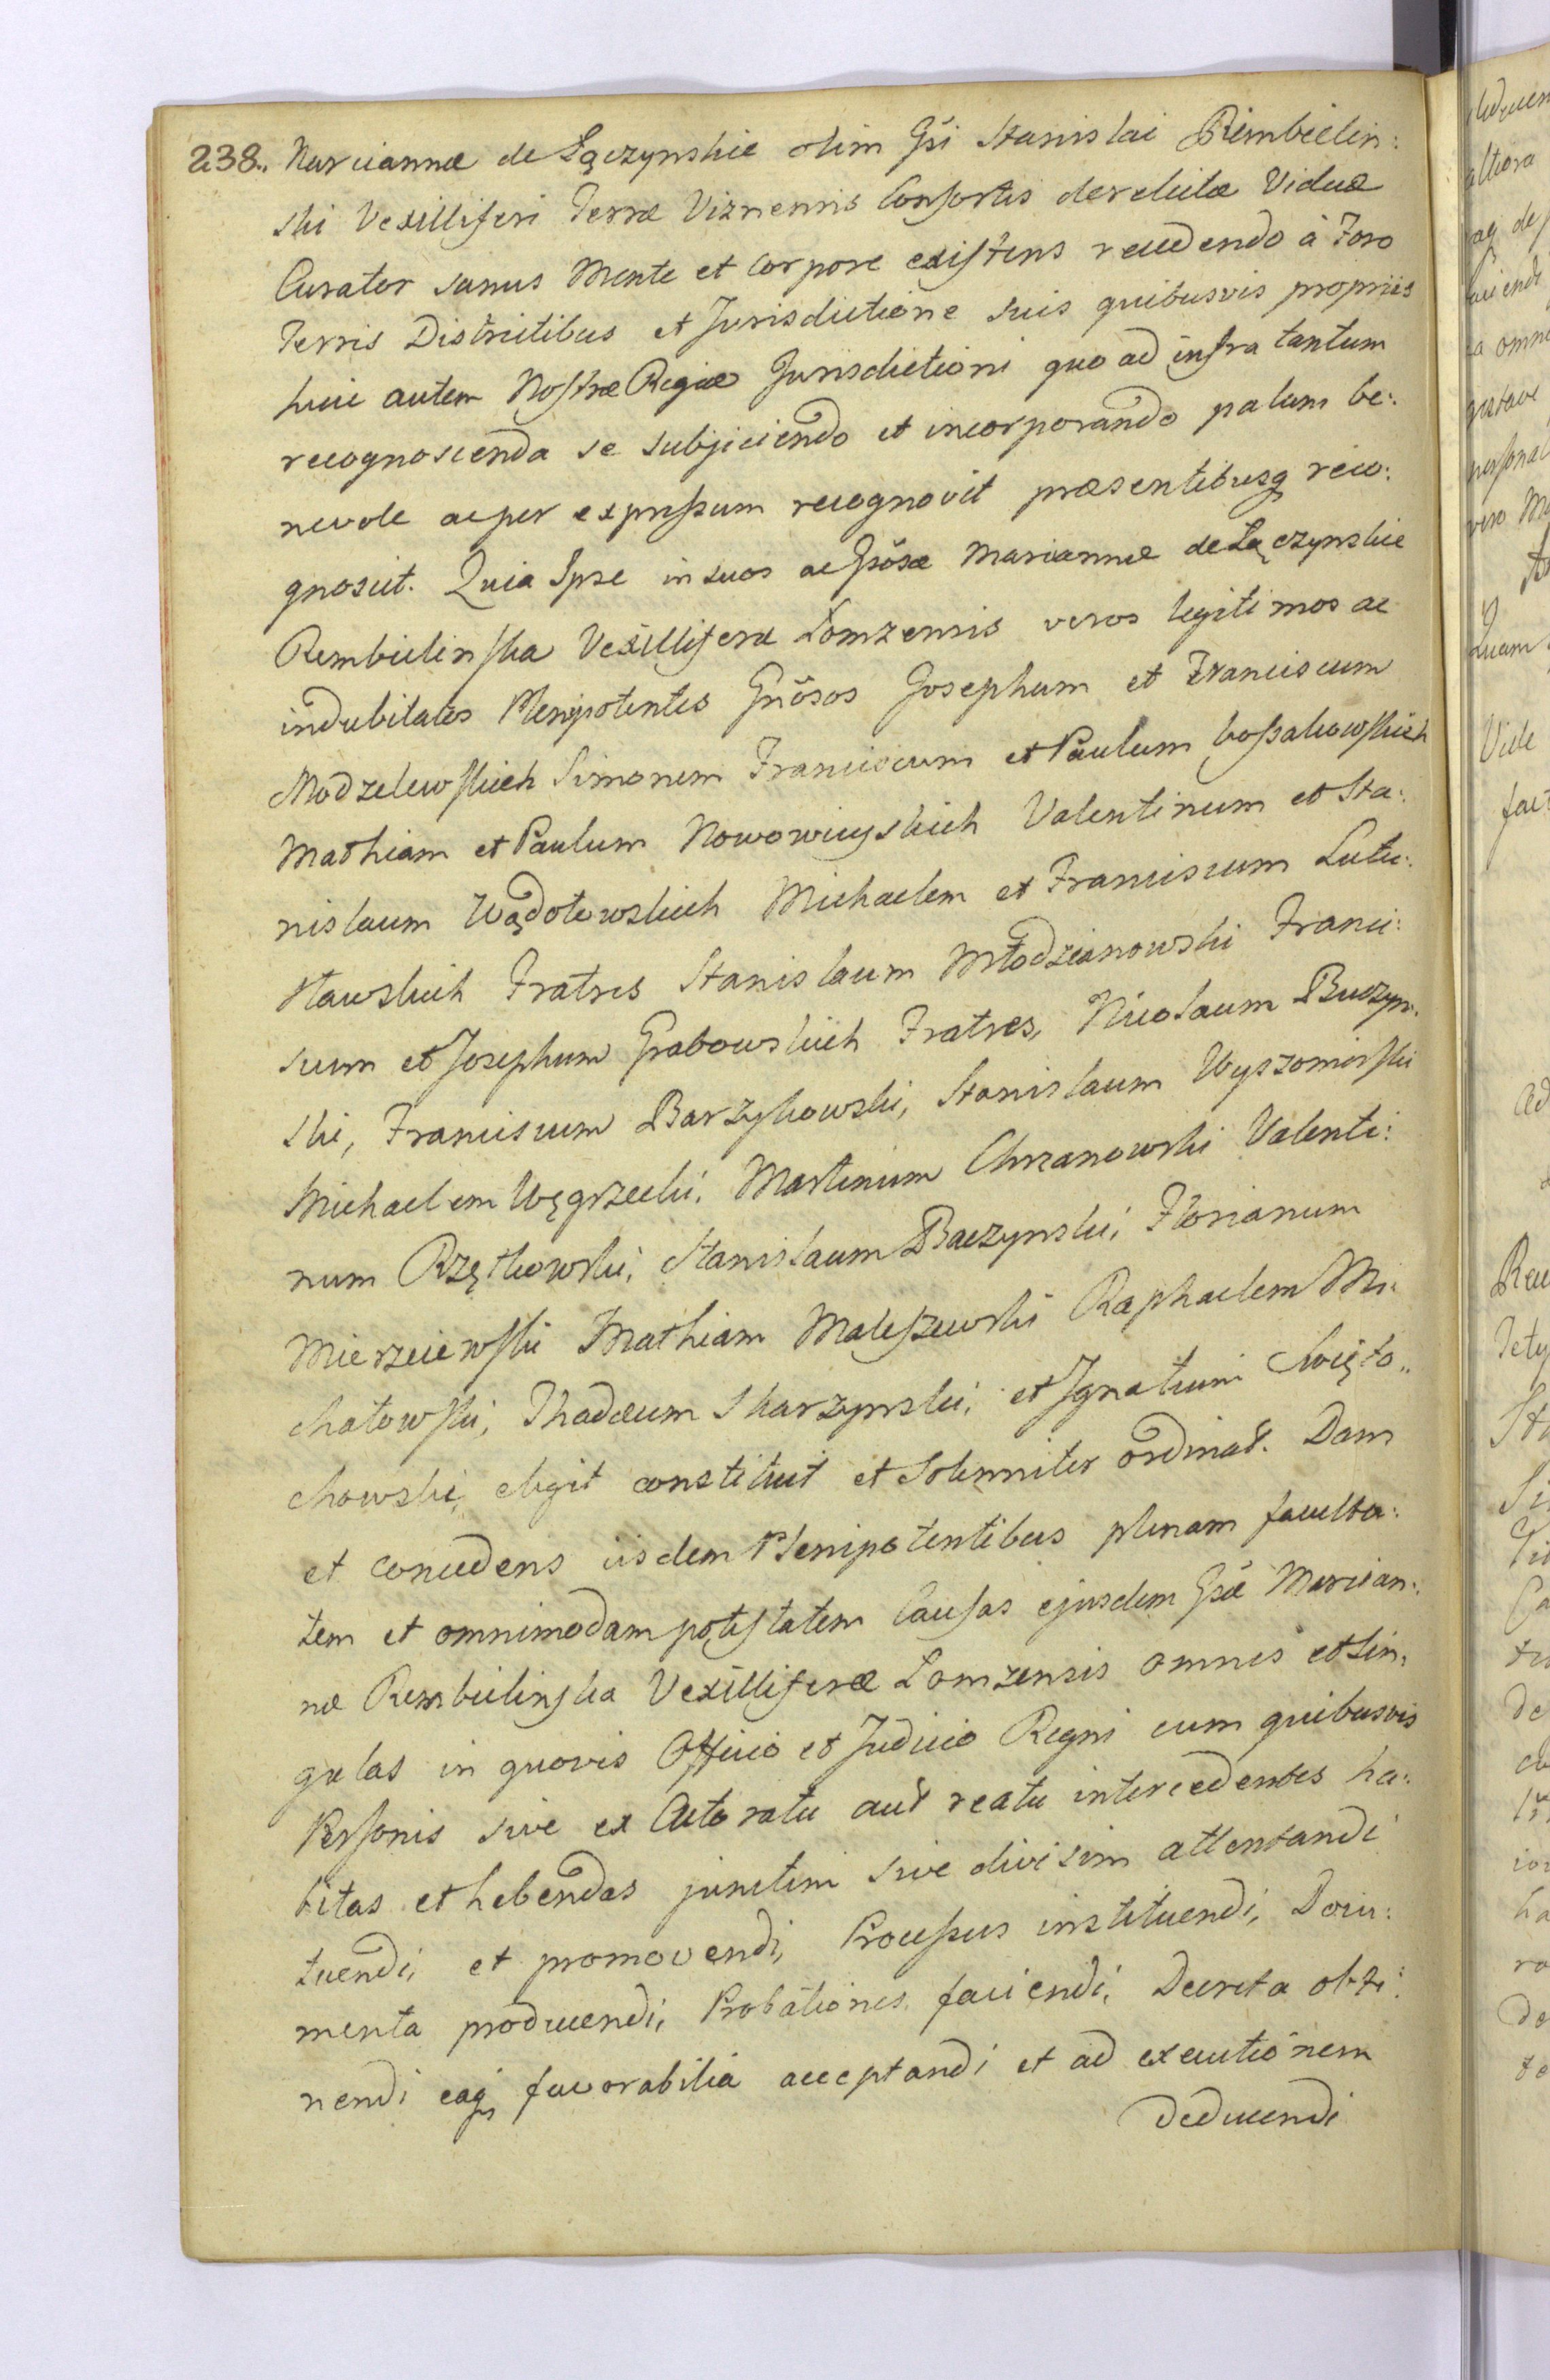 238.. Mariannæ de Łączynskie olim Gsi Stanislai Rembielin:
ski Vexilliferi Terræ Viznensis Consortis derelictæ Viduæ
Curator sanus Mente et Corpore existens recedendo à Foro
Terris Districtibus et Jurisdictione suis quibusvis propriis
huic autem Nostræ Regiæ Jurisdictioni quo ad infra tantum
recognoscenda se subjiciendo et incorporando palam be:
nevole ac per expressum recognovit præsentibusq reco:
gnoscit. Quia Ipse in suos ac Gnosæ Mariannæ de Łączynskie
Rembielinska Vexilliferæ Lomzensis veros legitimos ac
indubitatos Plenipotentes Gnosos Josephum et Franciscum
Modzelewskich Simonem Franciscum et Paulum Cossakowskich
Mathiam et Paulum Nowowieyskich Valentinum et Sta:
nislaum Wądołowskich Michaelem et Franciscum Luto:
stawskich Fratres Stanislaum Młodzianowski Franci:
scum et Josephum Grabowskich Fratres, Nicolaum Buczyn:
ski, Franciscum Barzykowski, Stanislaum Wyszomirski
Michaelem Węgrzecki, Martinum Chrzanowski Valenti:
num Rzętkowski, Stanislaum Baczynski, Florianum
Mierzeiewski Mathiam Maleszewski Raphaelem Mi:
chałowski, Thadæum Skarzynski, et Ignatium Swięto..
chowski, elegit constituit et Solenniter ordinat. Dans
et concedens iisdem Plenipotentibus plenam faculta:
tem et omnimodam potestatem Causas ejusdem Gsæ Marian:
næ Rembielinska Vexilliferæ Lomzensis omnes et sin:
gulas in quovis Officio et Judicio Regni cum quibusvis
Personis sive ex Actoratu aut reatu intercedentes ha:
bitas et habendas junctim sive divisim attentandi
tuendi, et promovendi, Processus instituendi, Docu:
menta producendi, Probationes faciendi, Decreta obti:
nendi eaq favorabilia acceptandi et ad executionem
deducendi